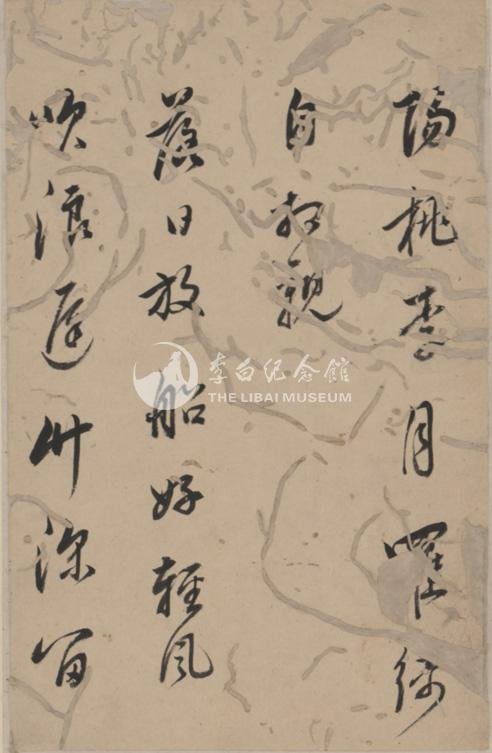 陽桃李月羅綺
自相親
落日放船好輕風
吹浪遲竹深留
李白纪念館
THE LIBAI MUSEUM